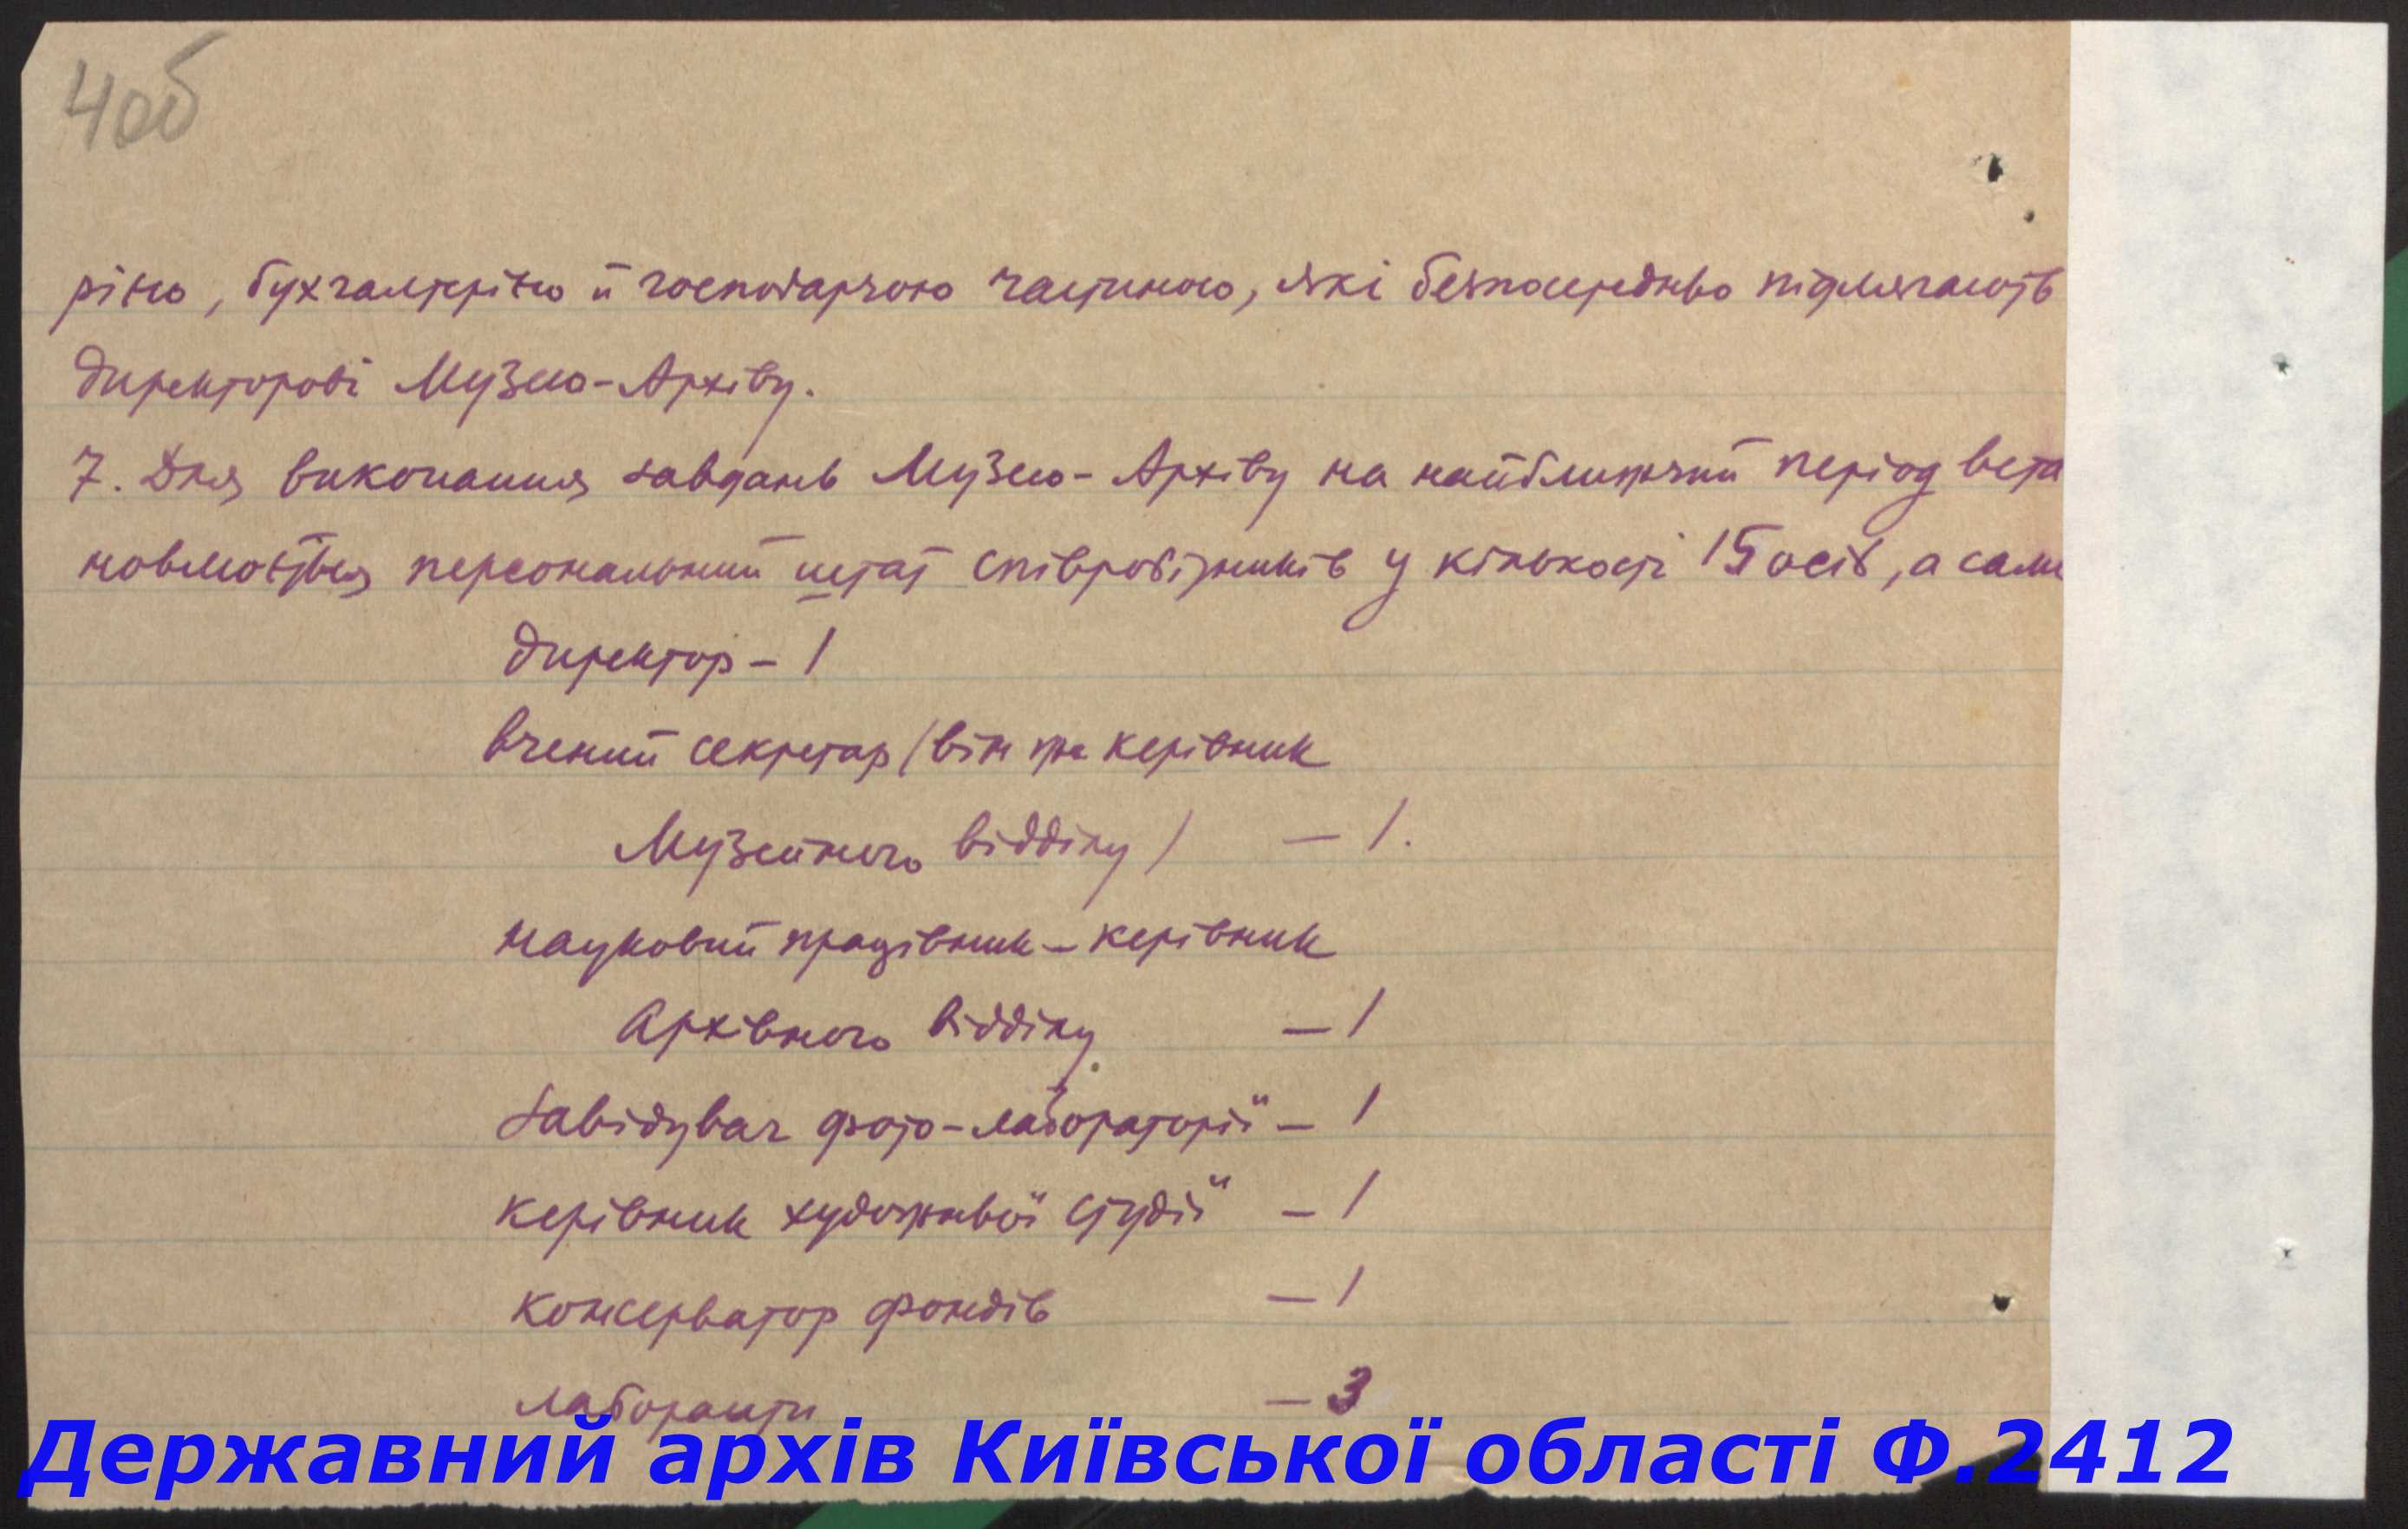 4об
рією, бухгалтерією й господарчою частиною, які безпосередньо підлягають
директорові Музею-Архіву.
7. Для виконання завдань Музею-Архіву на найближчий період вста
новлюється персональний штат співробітників у кількості 15 осіб, а саме
директор – 1
вчений секретар (він же керівник
Музейного відділу) – 1.
науковий працівник – керівник
Архівного відділу – 1
завідувач фото-лабораторії – 1
керівник художньої студії – 1
консерватор фондів – 1
лаборанти – 3
Державний архів Київської області Ф.2412